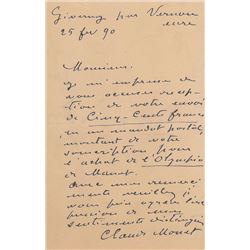 Giverny par Vernon
eure
25 fev 90
Monsieur.
je m'empresse de
vous accuser récep-
tion de votre envoi
de Cinq Cents francs
en un mandat postal,
montant de votre
souscription pour
l'achat de l'Olympia
de Manet.
Avec mes remercie
ments veuillez je
vous prie agréer l'ex
pression de mes
sentiments distingués
Claude Monet